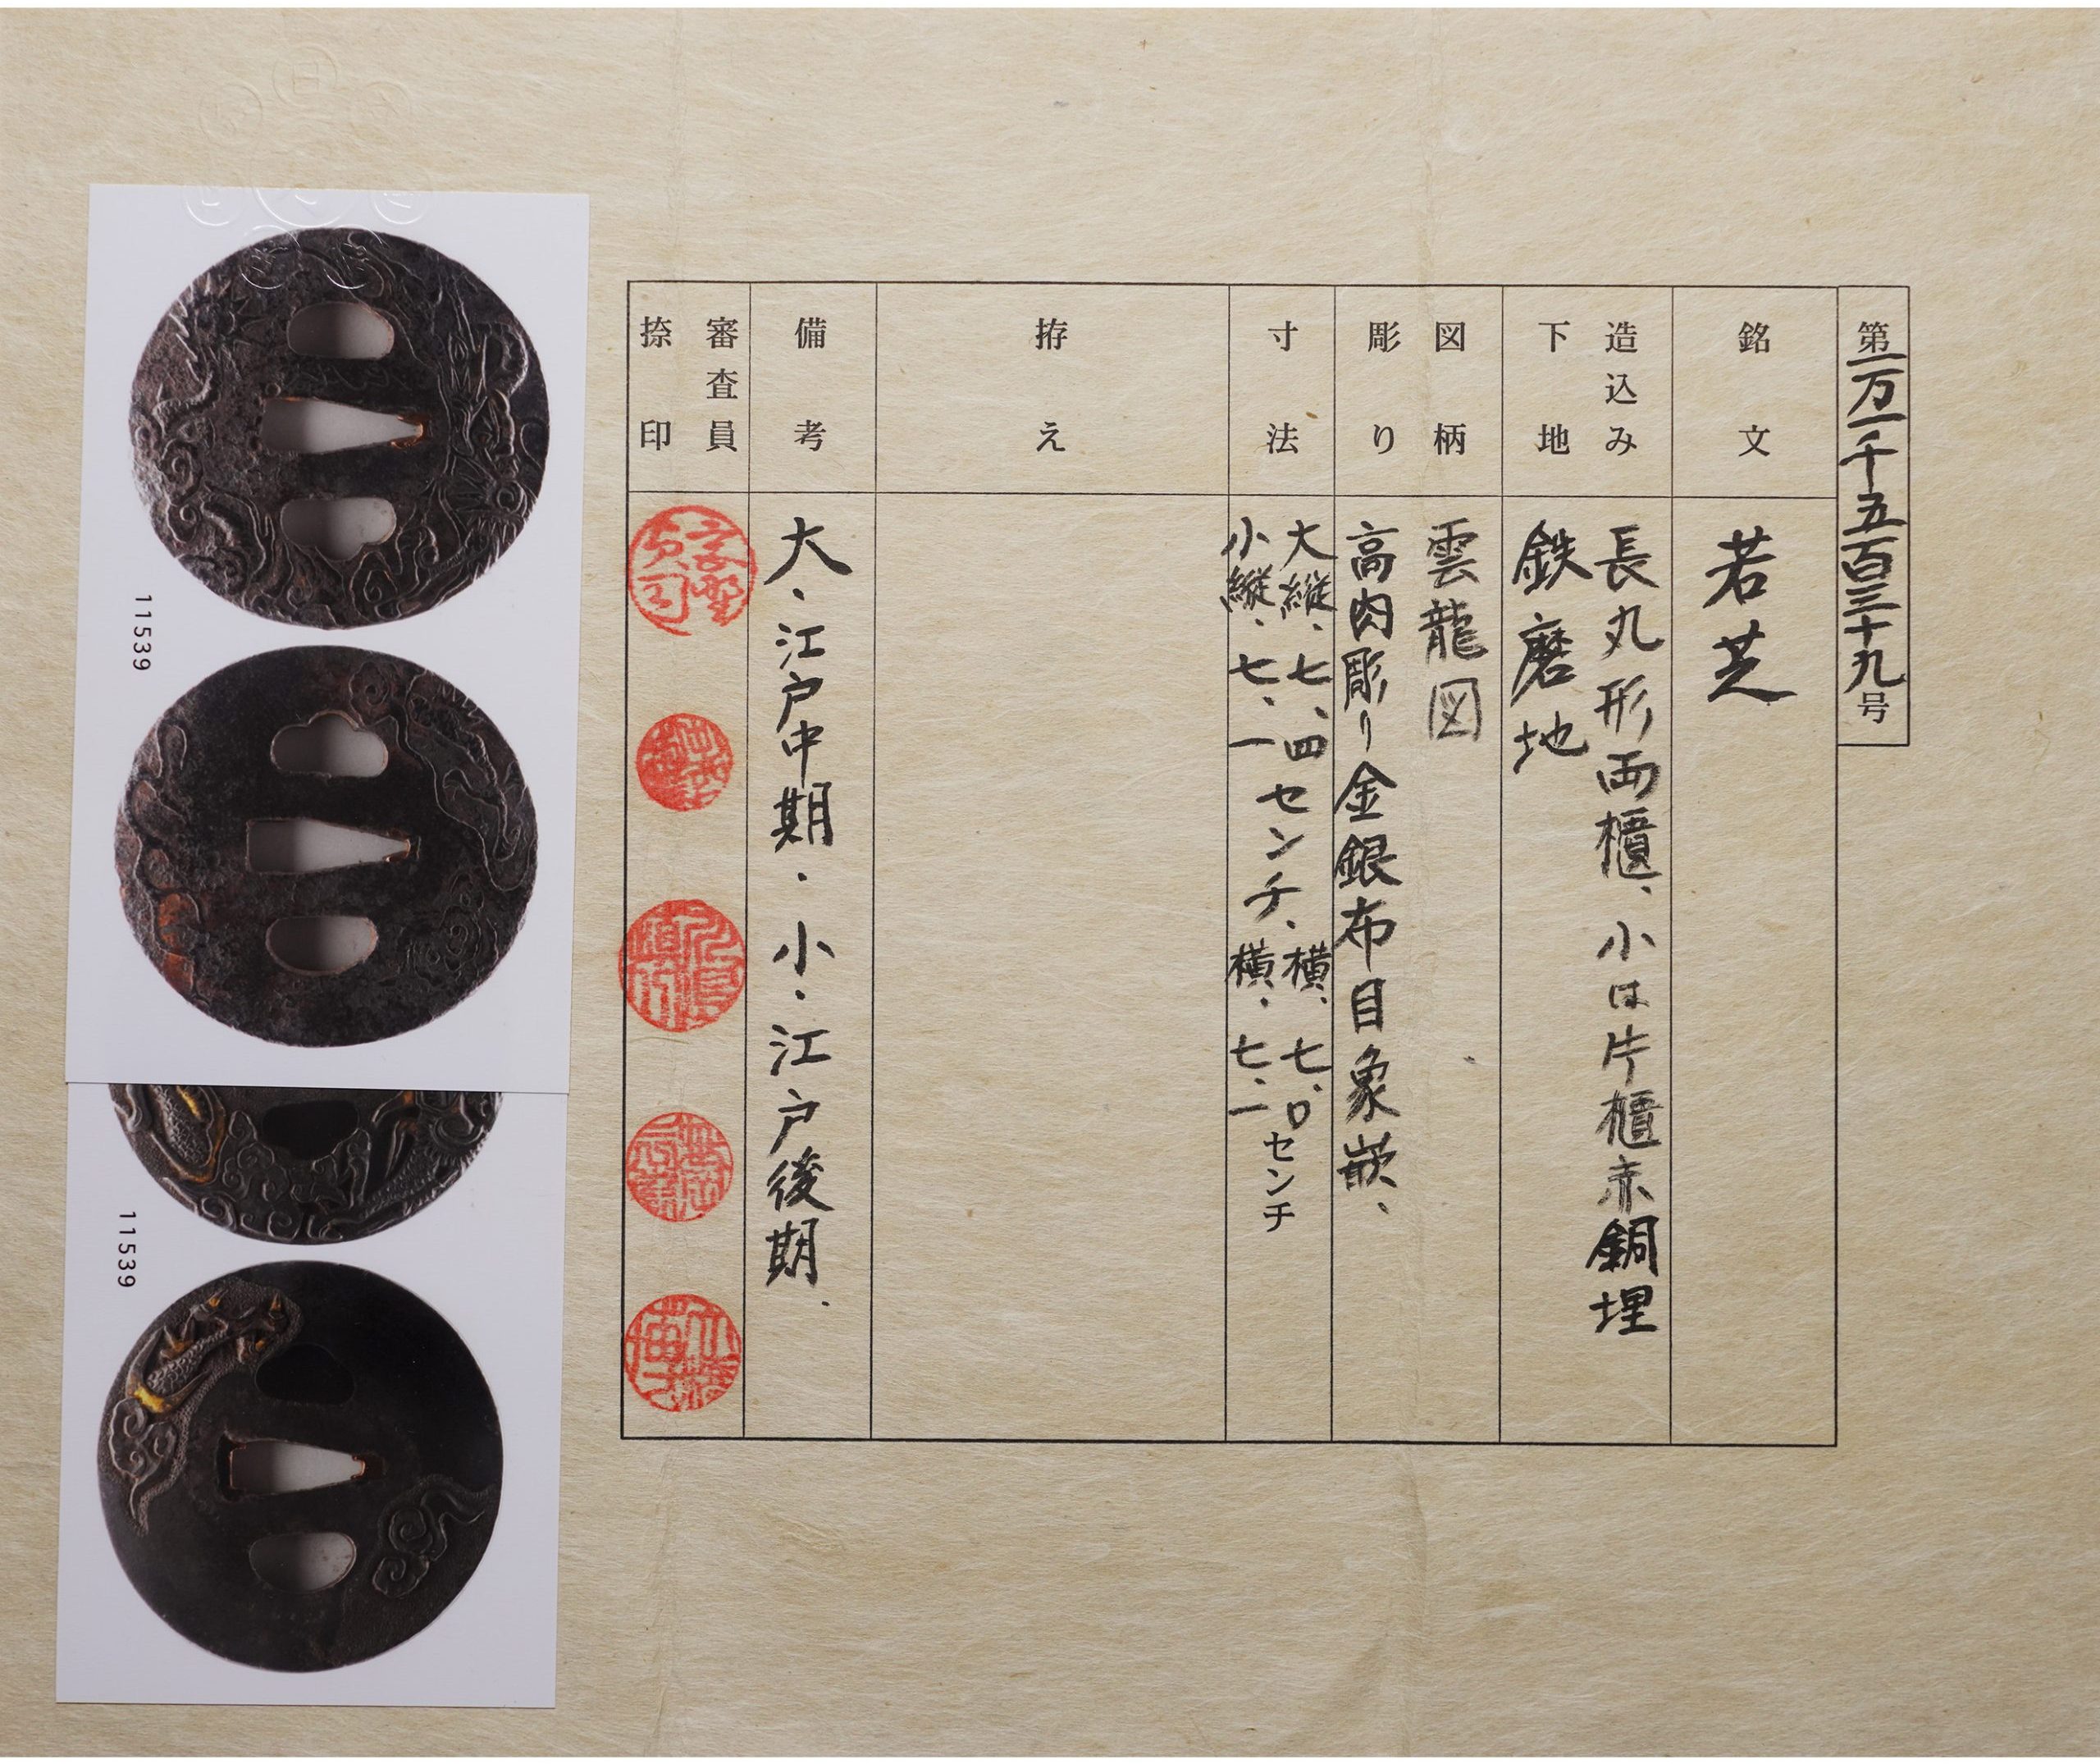 第一万一千五百三十九号
銘文
若芝
造込み
下地
長丸形両櫃、小は片櫃赤銅埋
鉄磨地
図柄
彫り
雲龍図
高肉彫り金銀布目象嵌、
寸法
大縦、七、四センチ、横、七、〇センチ
小縦、七、一 横、七、一
拵え
備考
大・江戸中期・小・江戸後期.
審査員
捺印
11539
11539